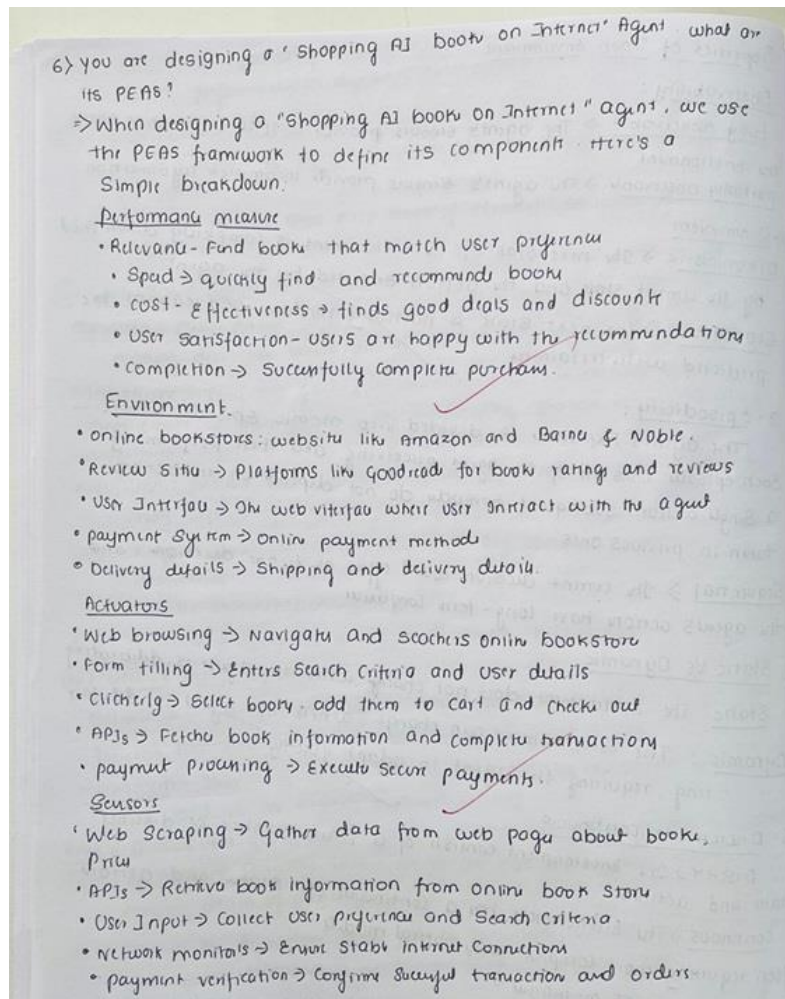 6) You are designing a 'Shopping AI books on Internet' Agent what are
its PEAS?
=> When designing a "Shopping AI books on Internet" agent, we use
the PEAS framework to define its components Here's a
Simple breakdown.
performance measure
• Relevance - Find books that match user preferences
• Speed → quickly find and recommends books
• cost - Effectiveness → finds good deals and discounts
• User Satisfaction - users are happy with the recommendations
• Completion → Successfully complete purchases.
Environment.
• online bookstores: website like Amazon and Barnes & Noble.
• Review Sites → Platforms like Goodreads for book ratings and reviews
• User Interface → The web interface where user interact with the agent
• payment System → Online payment methods
• Delivery details → Shipping and delivery details.
Actuators
• Web browsing → Navigates and seachers online bookstore
• Form filling → Enters Search Criteria and user details
• Clicking → Select books. add them to cart and checks out
• APIs → Fetches book information and complete transactions
• payment processing → Execute secure payments.
Sensors
• Web Scraping → Gather data from web pages about books,
Prices
• APIs → Retrieve book information from online book store
• User Input → Collect user preferences and Search Criteria.
• Network monitors → Ensure Stable internet Connections
• payment verification → Confirms Successful transaction and orders